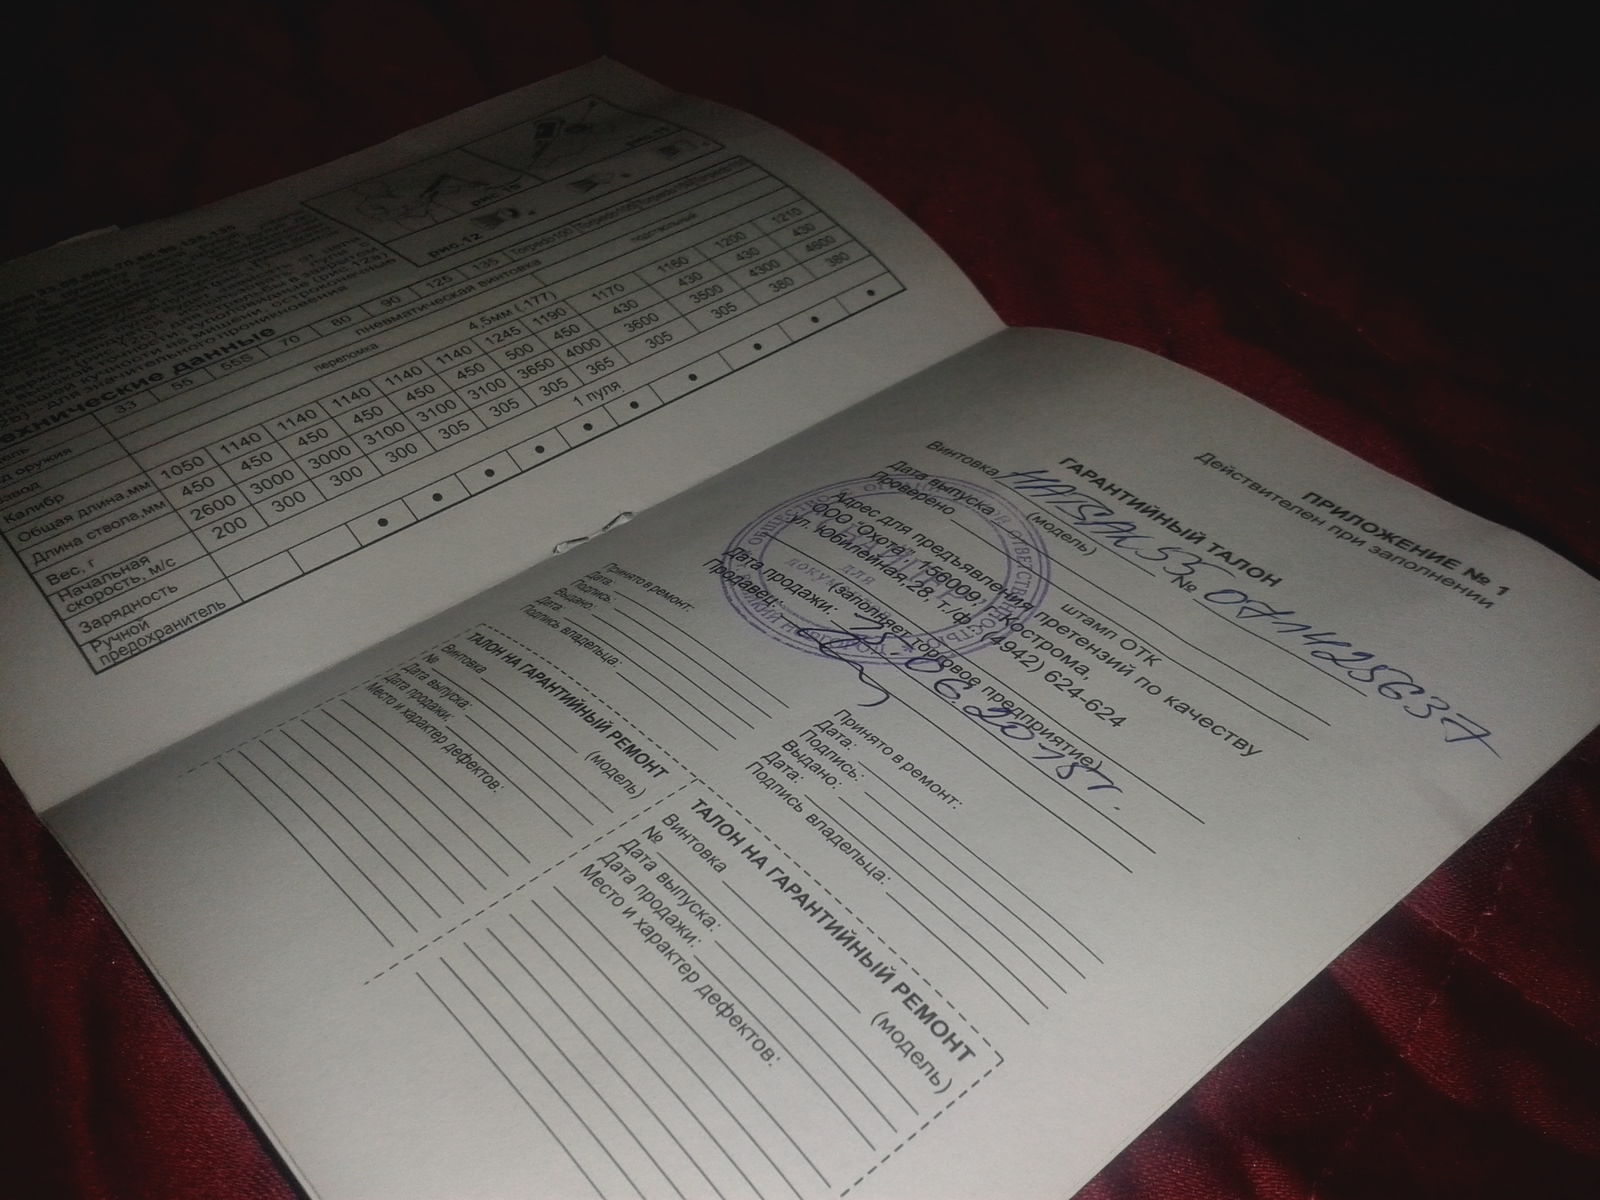 рис.15
рис.12
технические данные
33 55 55S 70 80 90 125 135 Torpedo100 Torpedo105 Torpedo150 Torpedo155
пневматическая винтовка
переломка
подствольный
Калибр 4,5мм (.177)
Общая длина,мм 1050 1140 1140 1140 1140 1140 1245 1190 1170 1160 1200 1210
Длина ствола,мм 450 450 450 450 450 450 500 450 430 430 430 430
Вес, г 2600 3000 3000 3100 3100 3100 3650 4000 3600 3500 4300 4600
Начальная
скорость, м/с 200 300 300 300 305 305 305 365 305 305 380 380
Зарядность 1 пуля
Ручной
предохранитель
ПРИЛОЖЕНИЕ № 1
Действителен при заполнении
ГАРАНТИЙНЫЙ ТАЛОН
Винтовка HATSAN 53 № 071425637
(модель)
Дата выпуска
Проверено
штамп ОТК
Адрес для предъявления претензий по качеству
ООО "Охота", 156009, г. Кострома,
ул. Юбилейная,28, т./ф. (4942) 624-624
(заполняет торговое предприятие)
Дата продажи: 25.06.2015г.
Продавец:
Принято в ремонт:
Дата:
Подпись:
Выдано:
Дата:
Подпись владельца:
ТАЛОН НА ГАРАНТИЙНЫЙ РЕМОНТ
Винтовка
(модель)
№
Дата выпуска:
Дата продажи:
Место и характер дефектов:
Принято в ремонт:
Дата:
Подпись:
Выдано:
Дата:
Подпись владельца:
ТАЛОН НА ГАРАНТИЙНЫЙ РЕМОНТ
Винтовка
(модель)
№
Дата выпуска:
Дата продажи:
Место и характер дефектов: